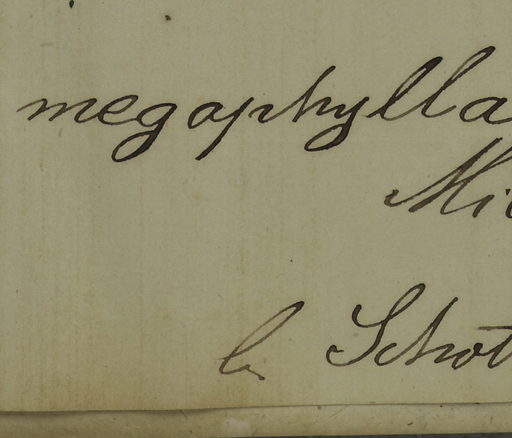 megophylla
Mi
Schot